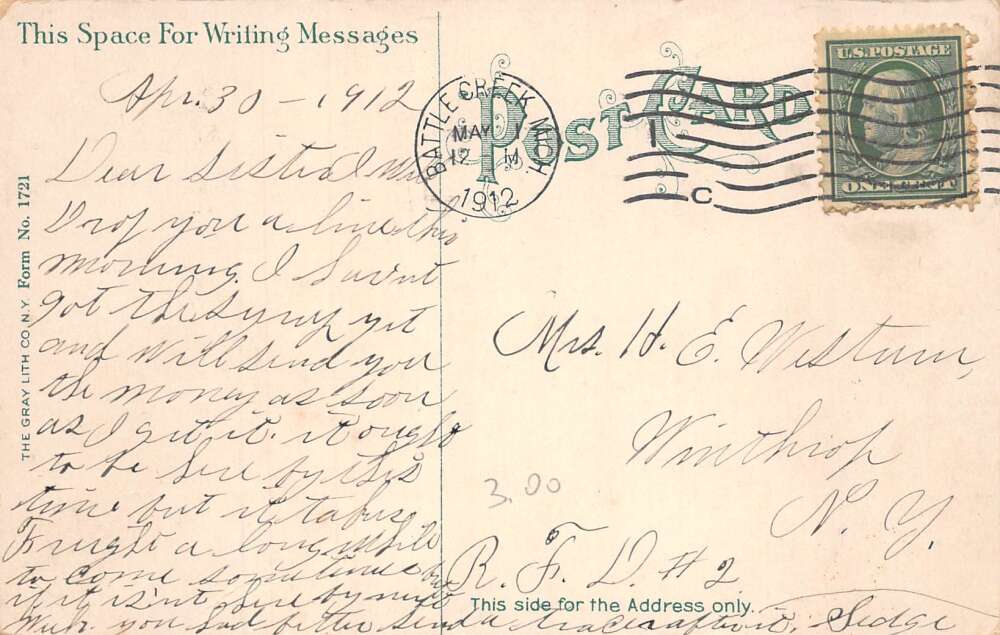 This Space For Writing Messages
Apr. 30 - 1912
Dear Sister I will
Drop you a line this
morning. I havnt
got the syrup yet
and will send you
the money as soon
as I git it. it ought
to be here by this
time but it takes
Frieght a long while
to come sometimes but
if it is'nt here by next
week you had better send a tracer after it. Sedge
THE GRAY LITH CO. N.Y. Form No. 1721
POST CARD
BATTLE CREEK MICH.
MAY 1
12 M
1912
1
C
U.S. POSTAGE
ONE CENT
Mrs. H. E.
Winthrop
N. Y.
R. F. D. #2
3.00
This side for the Address only.